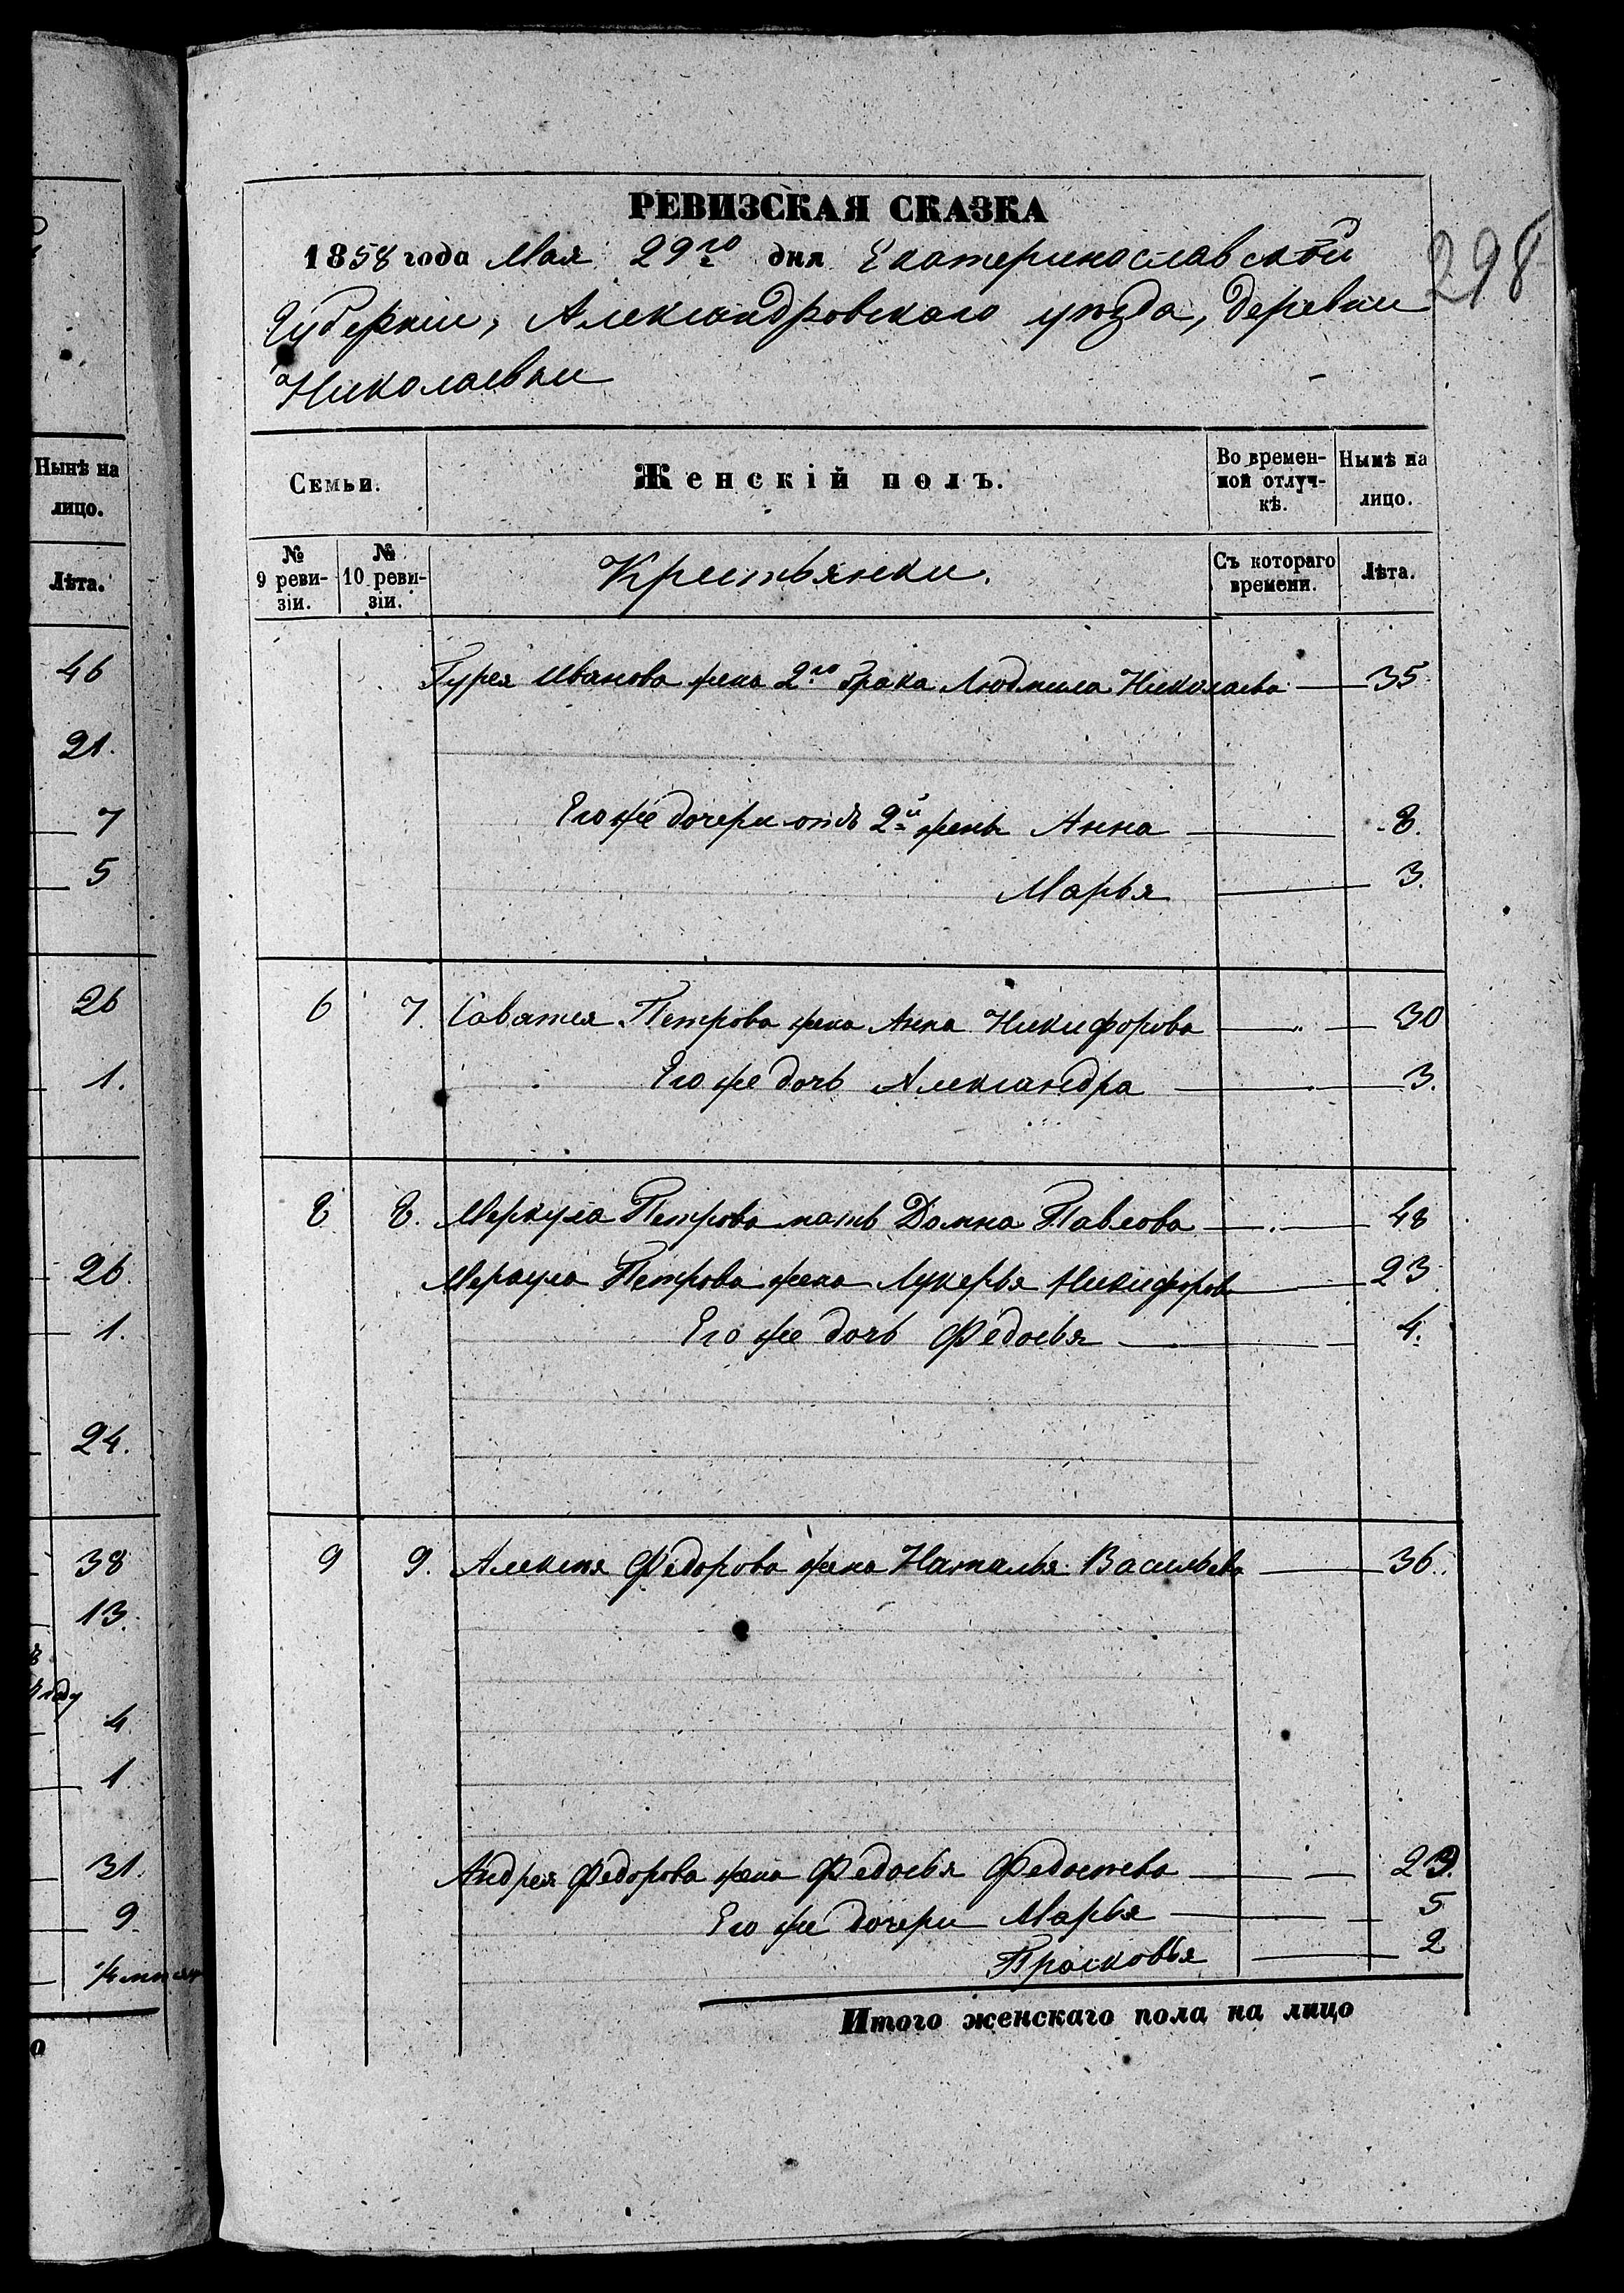 РЕВИЗСКАЯ СКАЗКА
1858 года Мая 29го дня Екатеринославской
Губерніи, Александровскаго уѣзда, деревни
Николаевки
298
Семьи.
Женскій полъ.
Во времен-
ной отлуч-
кѣ.
Нынѣ на
лицо.
№
9 реви-
зіи.
№
10 реви-
зіи.
Крестьянки.
Съ котораго
времени.
Лѣта.
Гурея Иванова жена 2го брака Людмила Николаева 35
Его же дочери отъ 2й жены Анна 8.
Марья 3.
6 7. Саватея Петрова жена Анна Никифорова 30
Его же дочь Александра 3.
8 8. Меркула Петрова мать Домна Павлова 48
Меркула Петрова жена Лукерья Никифорова 23
Его же дочь Федосья 4.
9 9. Алексѣя Федорова жена Наталья Васильева 36.
Андрея Федорова жена Федосья Федотева 29.
Его же дочери Марья 5
Прасковья 2
Итого женскаго пола на лицо
Нынѣ на
лицо.
Лѣта.
46
21.
7
5
26
1.
26.
1.
24.
38
13.
году
4.
1.
31.
9